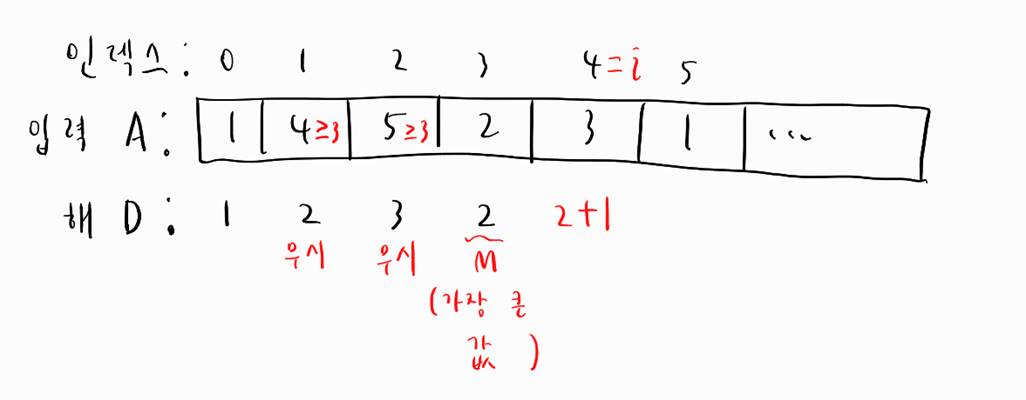 인덱스: 0 1 2 3 4=i 5
입력 A: 1 4≥3 5≥3 2 3 1 ...
해 D: 1 2 3 2 2+1
무시 무시 M
(가장 큰
값)